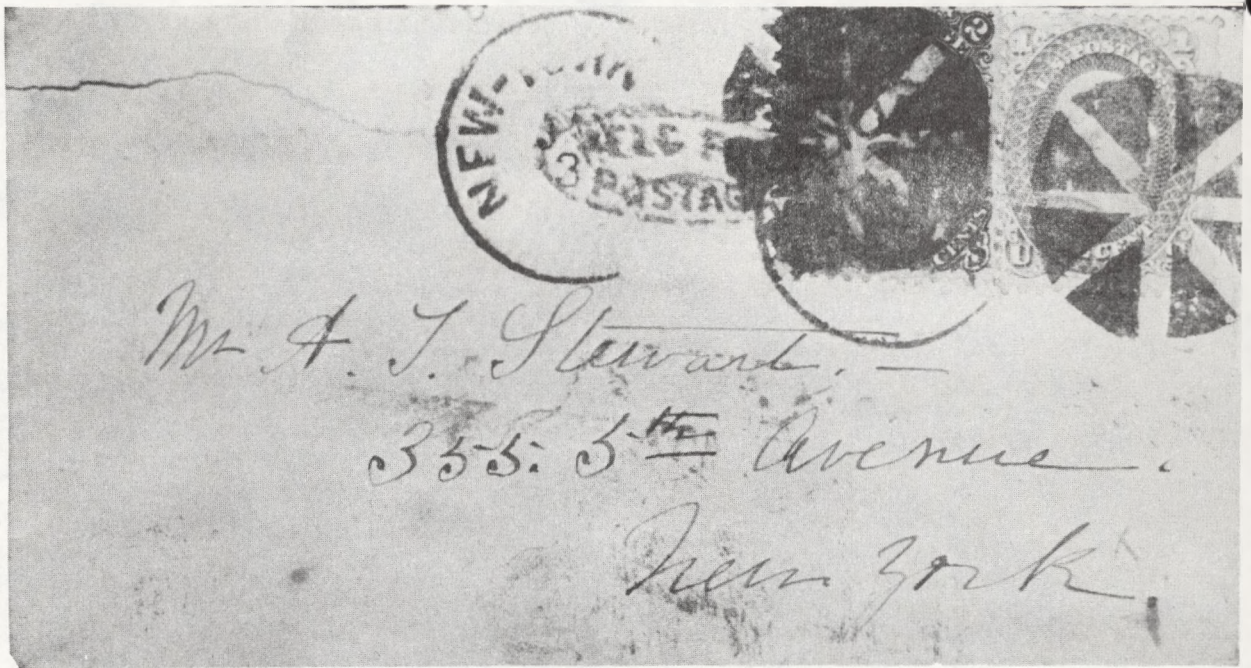 NEW-YORK
3 POSTAG
Mr A. T. Stewart. —
355. 5th Avenue.
New York.